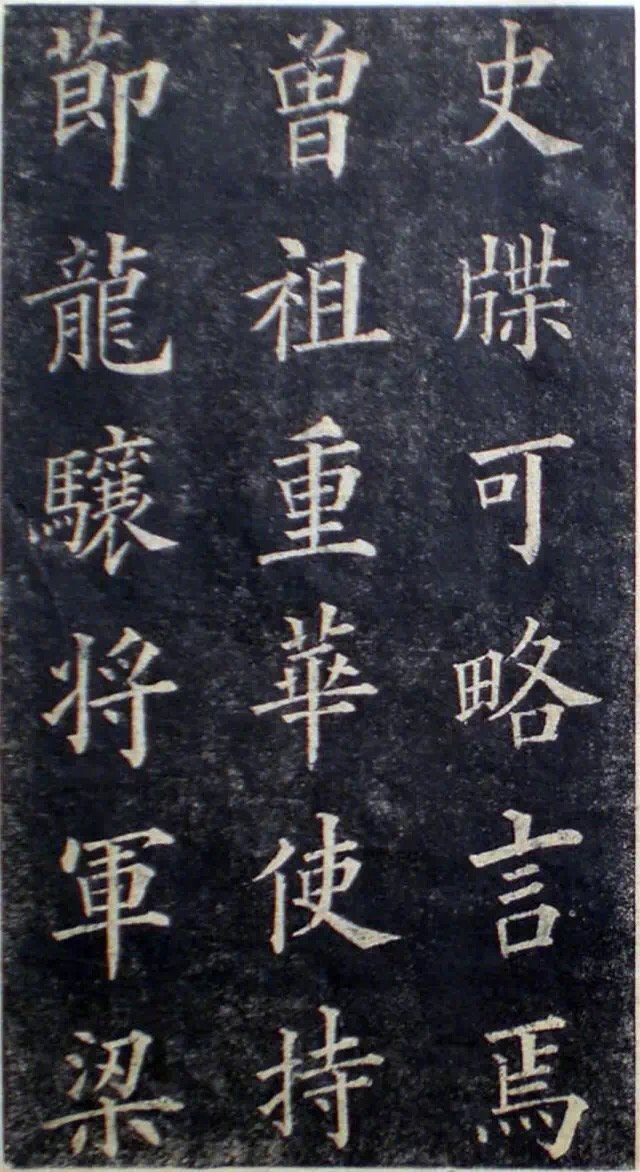 史牒可略言焉
曾祖重華使持
節龍驤将軍梁